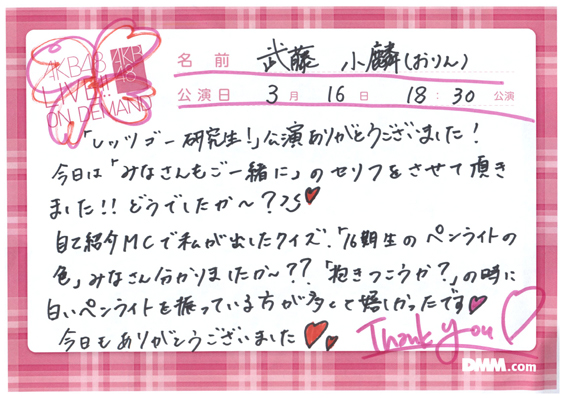 AKB48
LIVE!!
ON DEMAND
AKB
48
名前 武藤 小麟(おりん)
公演日 3月 16日 18:30 公演
「レッツゴー研究生!」公演ありがとうございました!
今日は「みなさんもご一緒に」のセリフをさせて頂き
ました!!どうでしたか〜?
自己紹介MCで私が出したクイズ、「16期生のペンライトの
色」みなさん分かりましたか〜??「抱きつこうか?」の時に
白いペンライトを振っている方が多くて嬉しかったです
今日もありがとうございました
Thank you
DMM.com